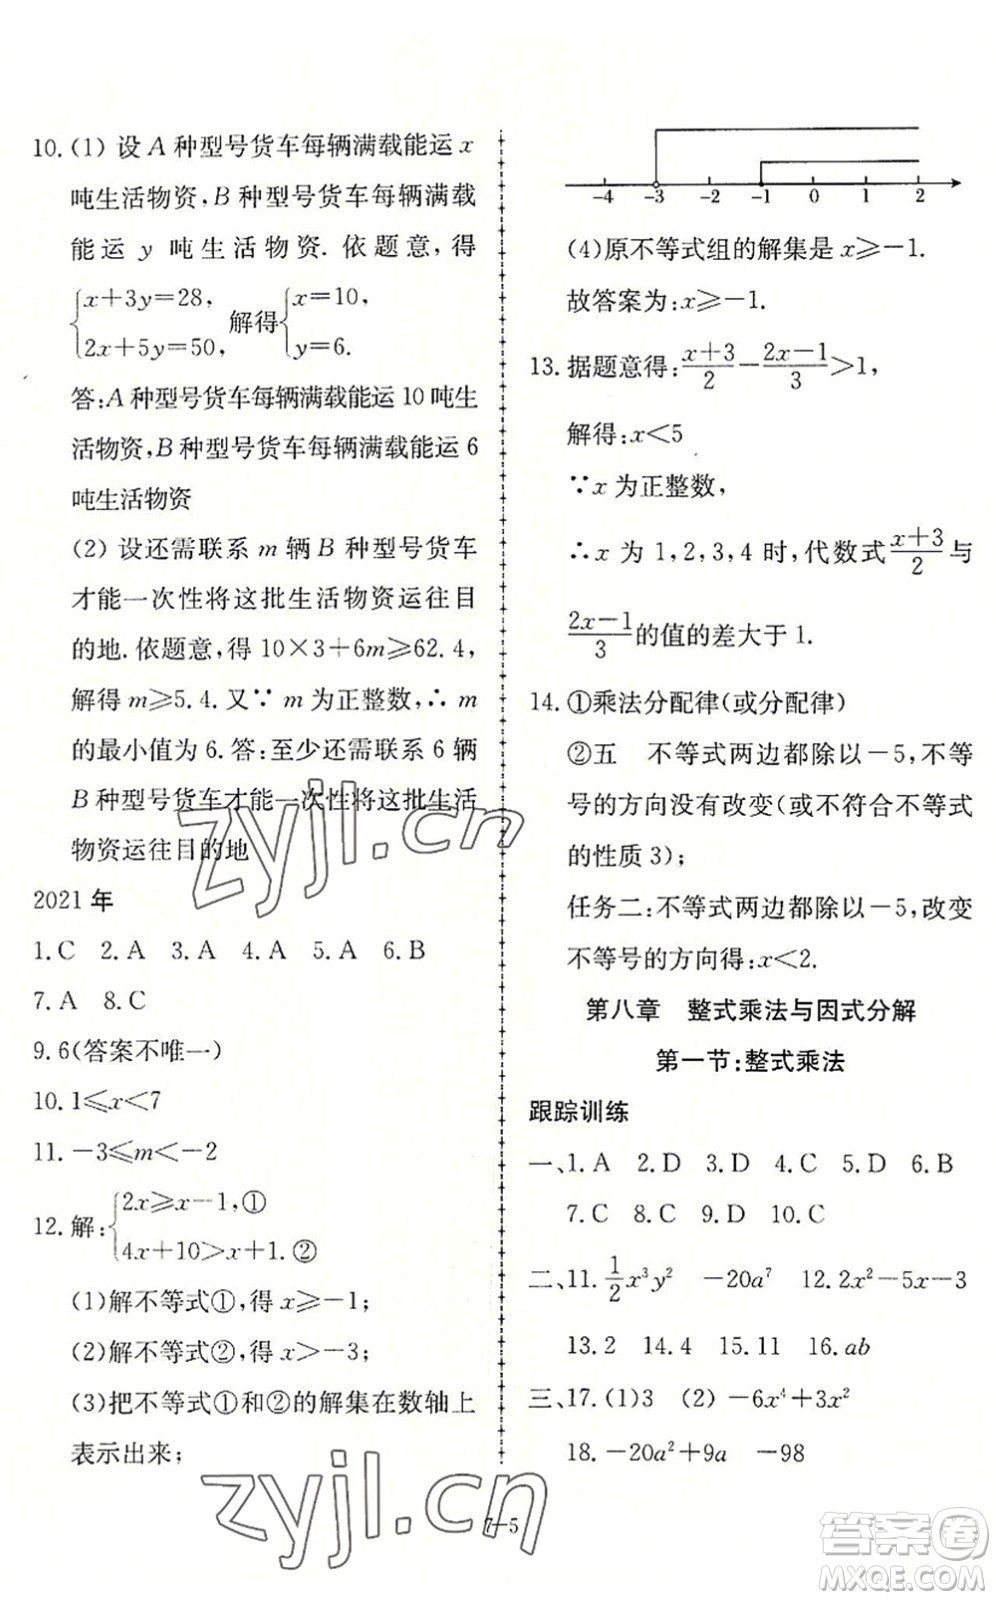 10.(1) 设 A 种型号货车每辆满载能运 x
吨生活物资,B 种型号货车每辆满载
能运 y 吨生活物资. 依题意,得
{x+3y=28, 2x+5y=50, 解得 {x=10, y=6.
答:A 种型号货车每辆满载能运 10 吨生
活物资,B 种型号货车每辆满载能运 6
吨生活物资
(2) 设还需联系 m 辆 B 种型号货车
才能一次性将这批生活物资运往目
的地. 依题意,得 10×3+6m≥62.4,
解得 m≥5.4. 又∵ m 为正整数,∴ m
的最小值为 6. 答:至少还需联系 6 辆
B 种型号货车才能一次性将这批生活
物资运往目的地
2021 年
1.C 2.A 3.A 4.A 5.A 6.B
7.A 8.C
9.6(答案不唯一)
10.1≤x<7
11.-3≤m<-2
12.解:{2x≥x-1,① 4x+10>x+1.②
(1)解不等式①,得 x≥-1;
(2)解不等式②,得 x>-3;
(3)把不等式①和②的解集在数轴上
表示出来;
-4 -3 -2 -1 0 1 2
(4)原不等式组的解集是 x≥-1.
故答案为:x≥-1.
13.据题意得:(x+3)/2-(2x-1)/3>1,
解得:x<5
∵x 为正整数,
∴x 为 1,2,3,4 时,代数式(x+3)/2与
(2x-1)/3的值的差大于 1.
14.①乘法分配律(或分配律)
②五 不等式两边都除以-5,不等
号的方向没有改变(或不符合不等式
的性质 3);
任务二:不等式两边都除以-5,改变
不等号的方向得:x<2.
第八章 整式乘法与因式分解
第一节:整式乘法
跟踪训练
一、1.A 2.D 3.D 4.C 5.D 6.B
7.C 8.C 9.D 10.C
二、11.½x³y² -20a⁷ 12.2x²-5x-3
13.2 14.4 15.11 16.ab
三、17.(1)3 (2)-6x⁴+3x²
18.-20a²+9a -98
7-5
zyjl.cn
zyjl.cn
答案卷
MXQE.COM